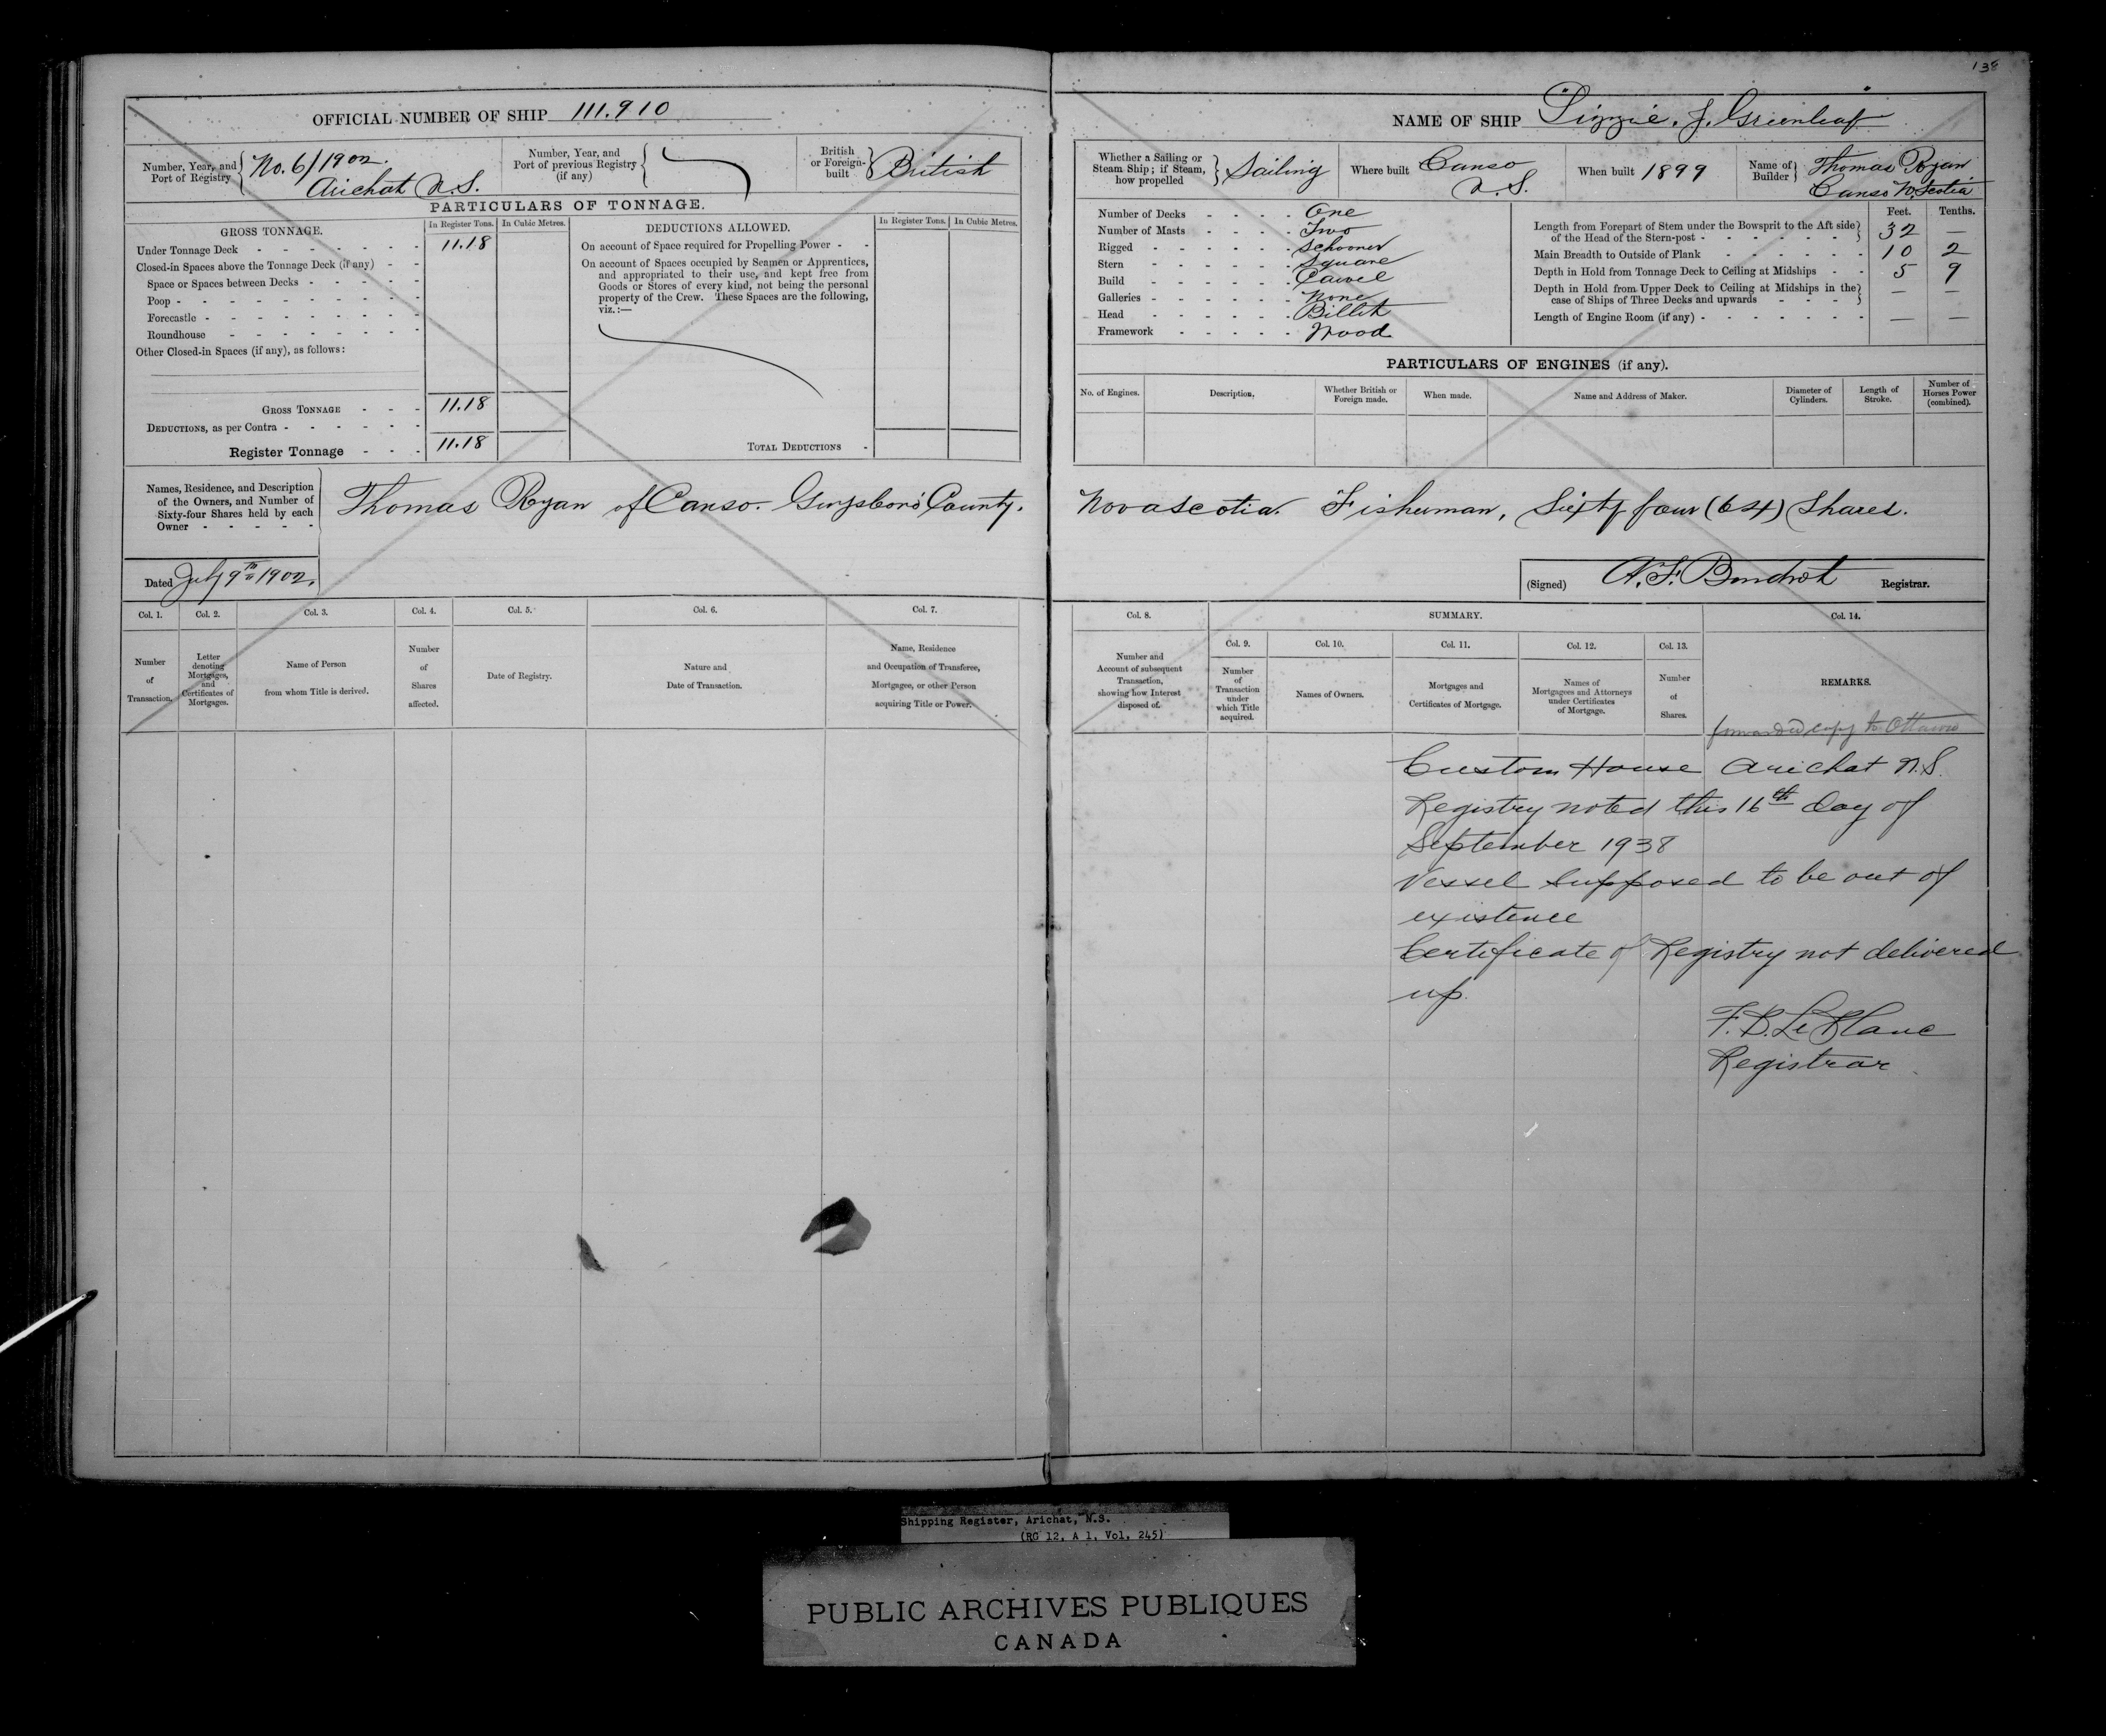 138
OFFICIAL NUMBER OF SHIP 111.910
Number, Year, and Port of Registry No. 6/1902. Arichat N.S.
Number, Year, and Port of previous Registry (if any)
British or Foreign-built British
PARTICULARS OF TONNAGE.
GROSS TONNAGE. In Register Tons. In Cubic Metres.
Under Tonnage Deck 11.18
Closed-in Spaces above the Tonnage Deck (if any)
Space or Spaces between Decks
Poop
Forecastle
Roundhouse
Other Closed-in Spaces (if any), as follows:
GROSS TONNAGE 11.18
DEDUCTIONS, as per Contra
Register Tonnage 11.18
DEDUCTIONS ALLOWED. In Register Tons. In Cubic Metres.
On account of Space required for Propelling Power
On account of Spaces occupied by Seamen or Apprentices,
and appropriated to their use, and kept free from
Goods or Stores of every kind, not being the personal
property of the Crew. These Spaces are the following,
viz.:—
TOTAL DEDUCTIONS
NAME OF SHIP "Lizzie. J. Greenleaf"
Whether a Sailing or Steam Ship; if Steam, how propelled Sailing
Where built Canso N.S.
When built 1899
Name of Builder Thomas Ryan Canso N. Scotia
Number of Decks One
Number of Masts Two
Rigged Schooner
Stern Square
Build Carvel
Galleries None
Head Billet
Framework Wood
Feet. Tenths.
Length from Forepart of Stem under the Bowsprit to the Aft side of the Head of the Stern-post 32 —
Main Breadth to Outside of Plank 10 2
Depth in Hold from Tonnage Deck to Ceiling at Midships 5 9
Depth in Hold from Upper Deck to Ceiling at Midships in the case of Ships of Three Decks and upwards — —
Length of Engine Room (if any) — —
PARTICULARS OF ENGINES (if any).
No. of Engines. Description. Whether British or Foreign made. When made. Name and Address of Maker. Diameter of Cylinders. Length of Stroke. Number of Horses Power (combined).
Names, Residence, and Description of the Owners, and Number of Sixty-four Shares held by each Owner
Thomas Ryan of Canso. Guysboro' County. Nova Scotia. Fisherman, Sixty four (64) Shares.
Dated July 9th 1902.
(Signed) A. F. Bondrot Registrar.
Col. 1. Col. 2. Col. 3. Col. 4. Col. 5. Col. 6. Col. 7.
Number of Transaction.
Letter denoting Mortgages, and Certificates of Mortgages.
Name of Person from whom Title is derived.
Number of Shares affected.
Date of Registry.
Nature and Date of Transaction.
Name, Residence and Occupation of Transferee, Mortgagee, or other Person acquiring Title or Power.
Col. 8. SUMMARY. Col. 14.
Col. 9. Col. 10. Col. 11. Col. 12. Col. 13.
Number and Account of subsequent Transaction, showing how Interest disposed of.
Number of Transaction under which Title acquired.
Names of Owners.
Mortgages and Certificates of Mortgage.
Names of Mortgagees and Attorneys under Certificates of Mortgage.
Number of Shares.
REMARKS.
forwarded copy to Ottawa
Custom House Arichat N.S.
Registry noted this 16th day of
September 1938
Vessel supposed to be out of
existence
Certificate of Registry not delivered
up.
F. D. LeBlanc
Registrar
Shipping Register, Arichat, N.S.
(RG 12, A 1, Vol. 245)
PUBLIC ARCHIVES PUBLIQUES
CANADA